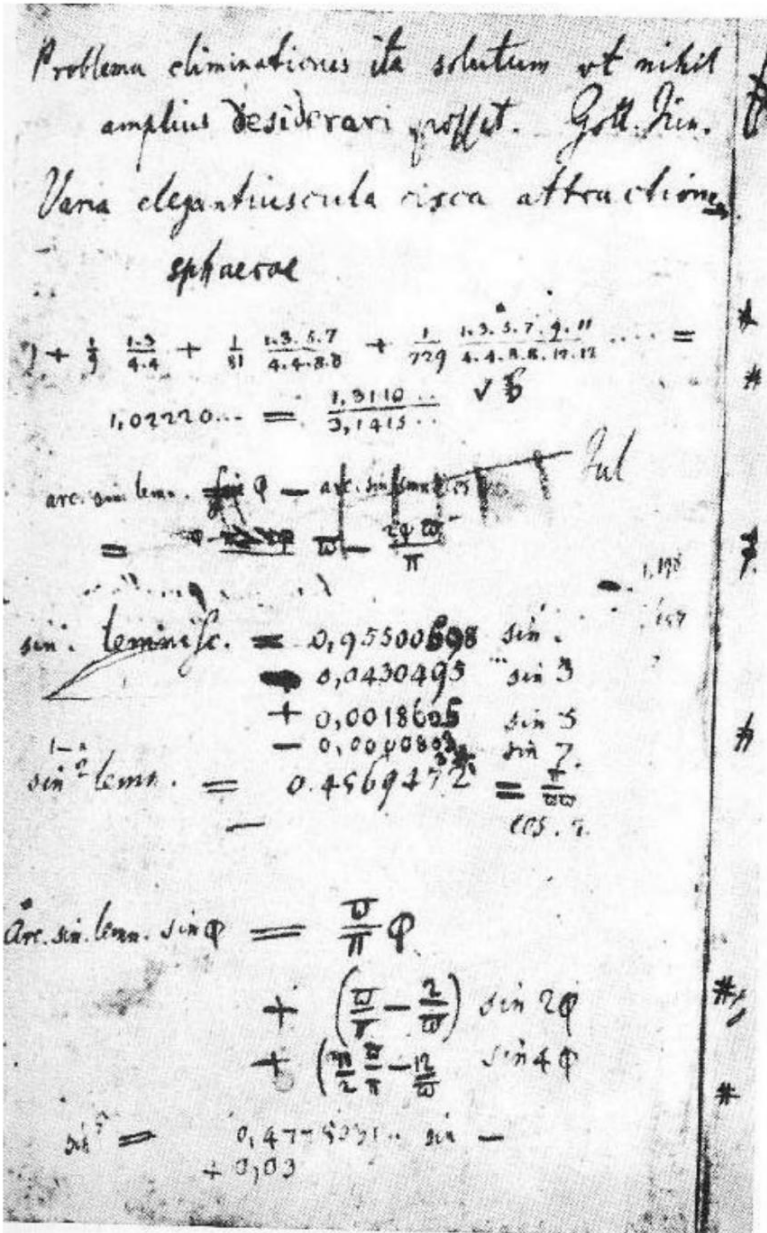 Problema eliminationis ita solutum ut nihil
amplius desiderari possit. Gott. Jun.
Varia elegantiuscula circa attractionem
sphaerae
1 + 1/9 1.3/4.4 + 1/81 1.3.5.7/4.4.8.8 + 1/729 1.3.5.7.9.11/4.4.8.8.12.12 .... =
1,02220... = 1,3110../3,1415..
arc. sin. lemn. φ — arc. sin lemn cos Jul
= ϖ — 2φϖ/π
sin. lemnisc. = 0,95500698 sin.
0,0430495 sin 3
+ 0,0018605 sin 5
— sin 7.
sin² lemn. = 0.4569472 = π/ϖϖ
— cos.
Arc. sin. lemn. sin φ = ϖ/π φ
+ (ϖ/π — 2/ϖ) sin 2φ
+ ( ϖ/π — 12/ϖ sin 4φ
= sin —
+ 0,03